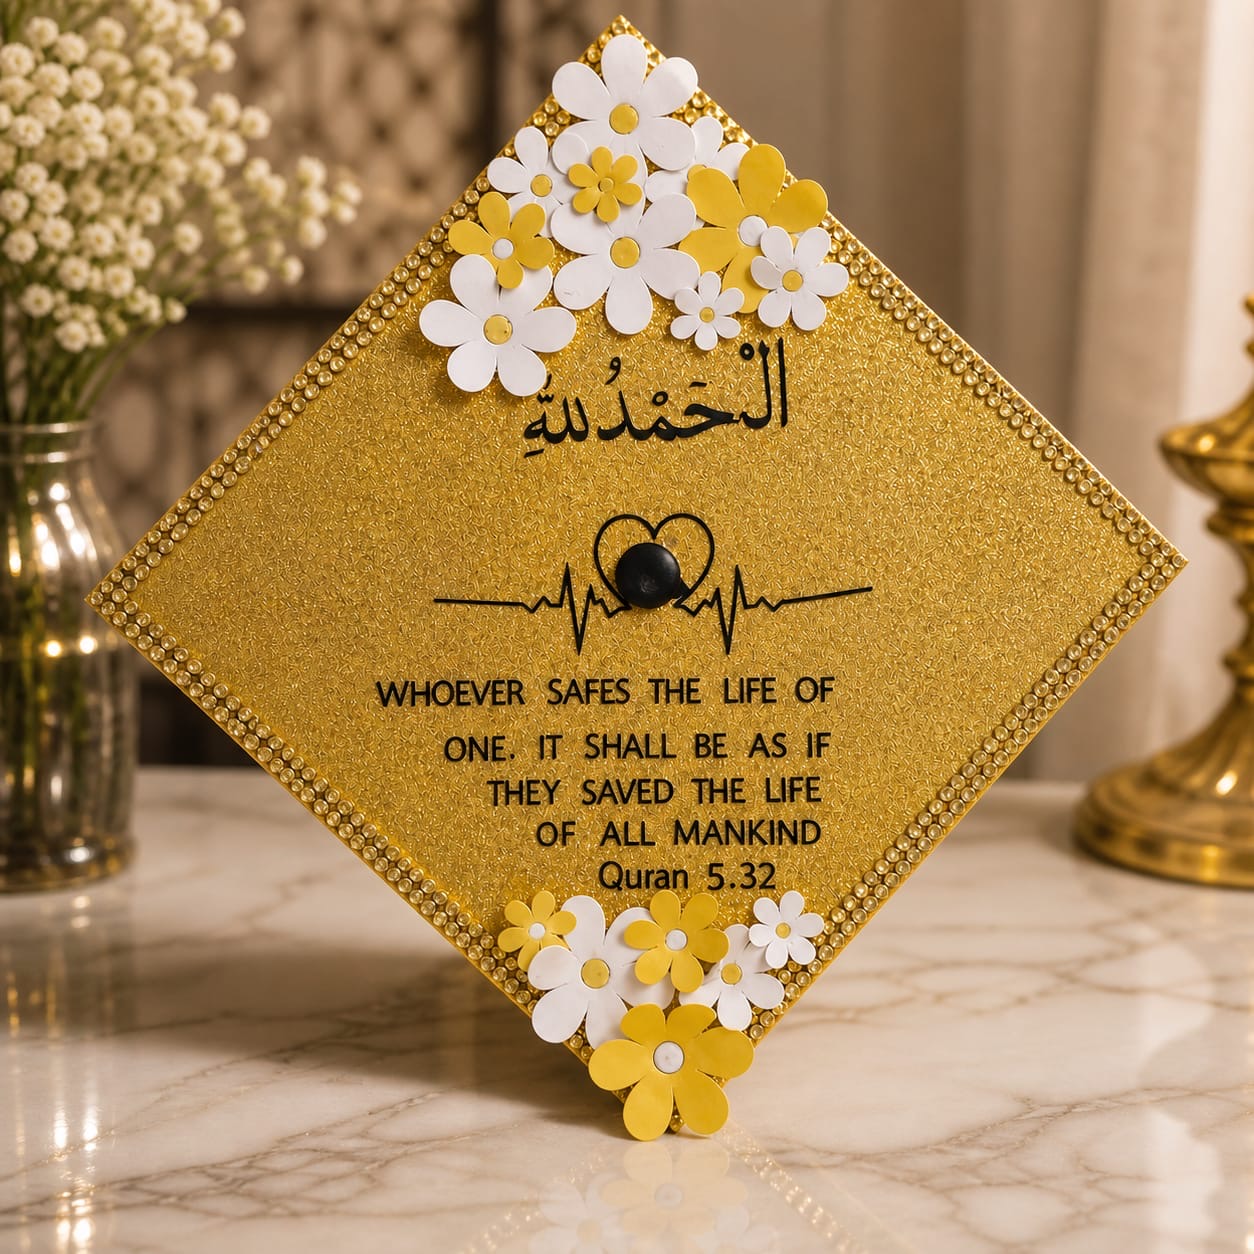 الْحَمْدُ لِلّٰهِ
WHOEVER SAFES THE LIFE OF
ONE. IT SHALL BE AS IF
THEY SAVED THE LIFE
OF ALL MANKIND
Quran 5.32